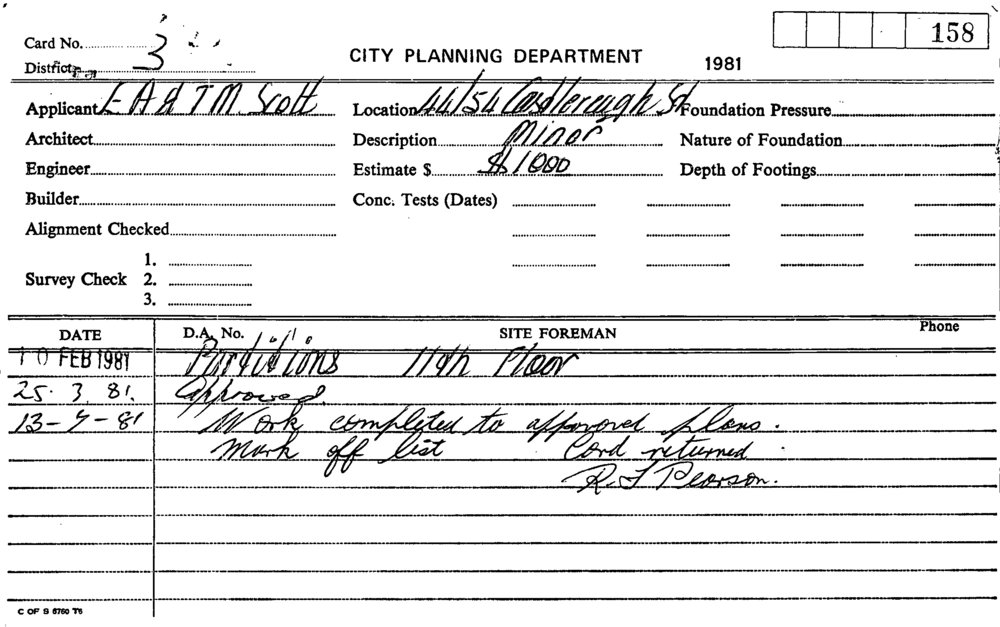 158
Card No.
District 3
CITY PLANNING DEPARTMENT 1981
Applicant E A & T M Scott Location 44/54 Castlereagh St Foundation Pressure
Architect Description Minor Nature of Foundation
Engineer Estimate $ $1000 Depth of Footings
Builder Conc. Tests (Dates)
Alignment Checked
1.
Survey Check 2.
3.
DATE D.A. No. SITE FOREMAN Phone
10 FEB 1981 Partitions 11th Floor
25. 3. 81. Approved.
13-7-81 Work completed to approved plans.
Mark off list Card returned
R. J Pearson.
C OF S 6760 T6